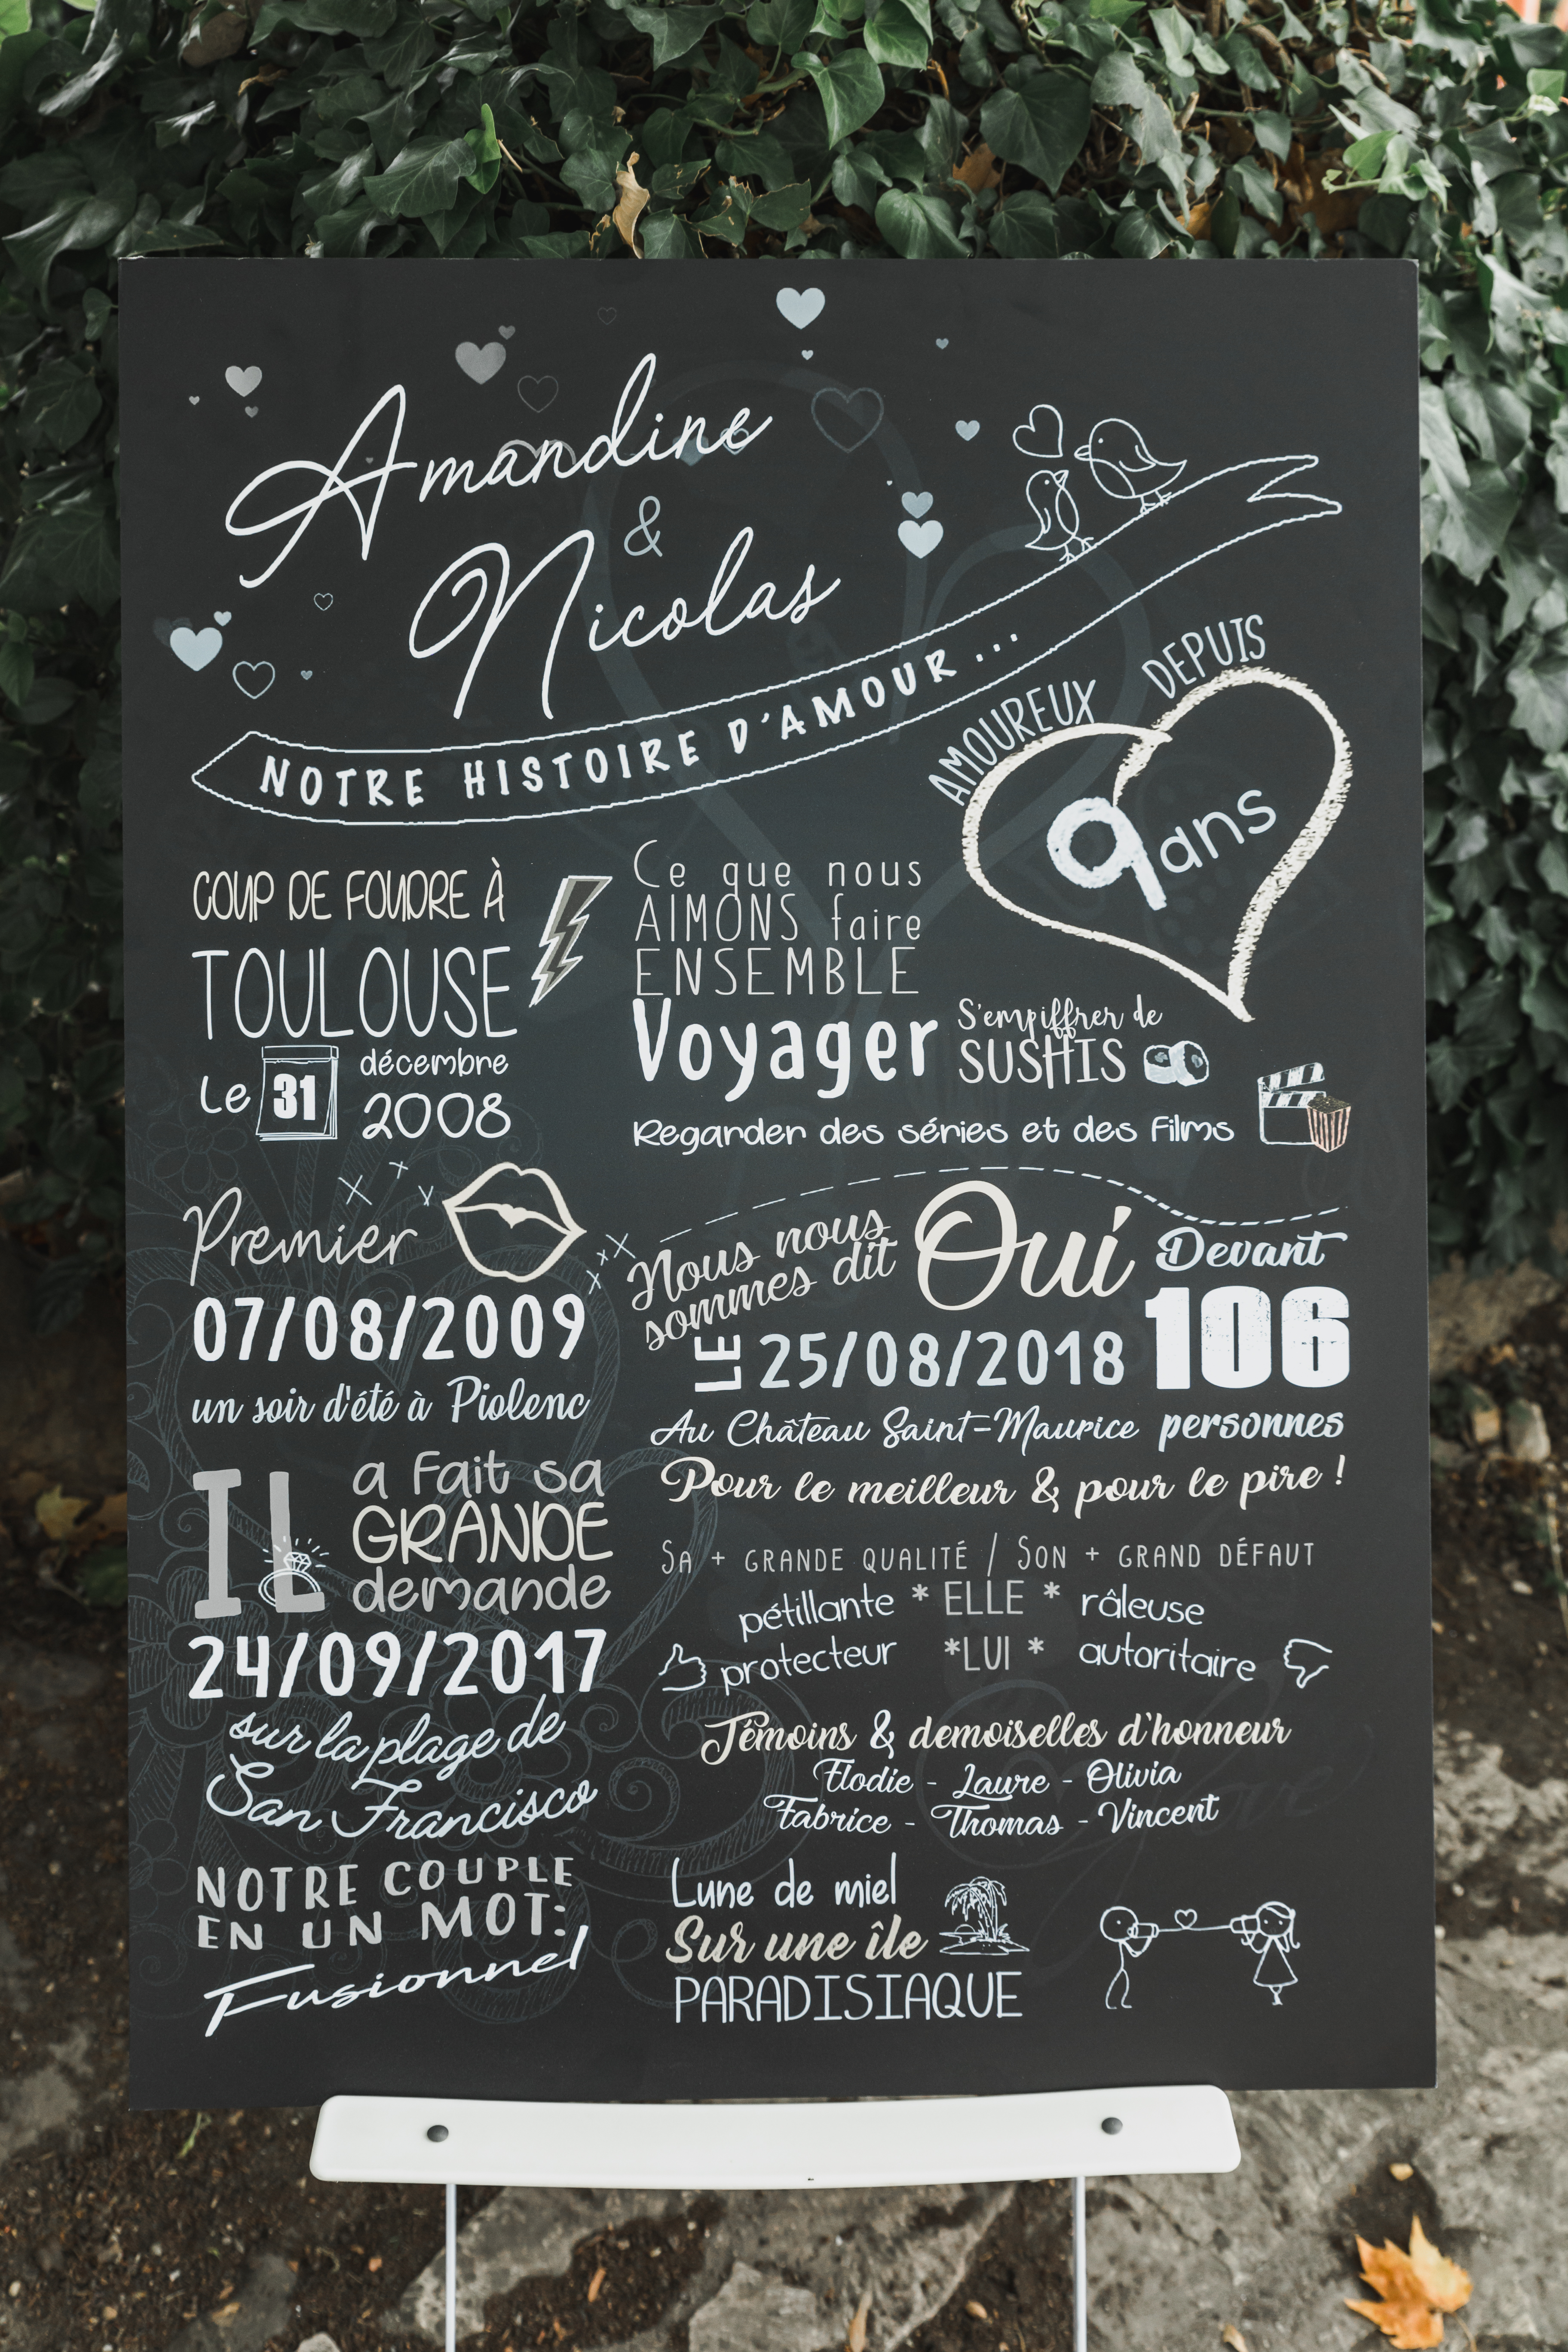 Amandine
&
Nicolas
NOTRE HISTOIRE D'AMOUR...
AMOUREUX DEPUIS
9 ans
COUP DE FOUDRE À
TOULOUSE
Le 31 décembre
2008
Ce que nous
AIMONS faire
ENSEMBLE
Voyager
S'empiffrer de
SUSHIS
Regarder des séries et des films
Premier
07/08/2009
un soir d'été à Piolenc
Nous nous
sommes dit
Oui
Devant
106
personnes
LE 25/08/2018
Au Château Saint-Maurice
Pour le meilleur & pour le pire !
IL
a fait sa
GRANDE
demande
24/09/2017
sur la plage de
San Francisco
Sa + GRANDE QUALITÉ / SON + GRAND DÉFAUT
pétillante * ELLE * râleuse
protecteur *LUI * autoritaire
Témoins & demoiselles d'honneur
Elodie - Laure - Olivia
Fabrice - Thomas - Vincent
NOTRE COUPLE
EN UN MOT:
Fusionnel
Lune de miel
Sur une île
PARADISIAQUE